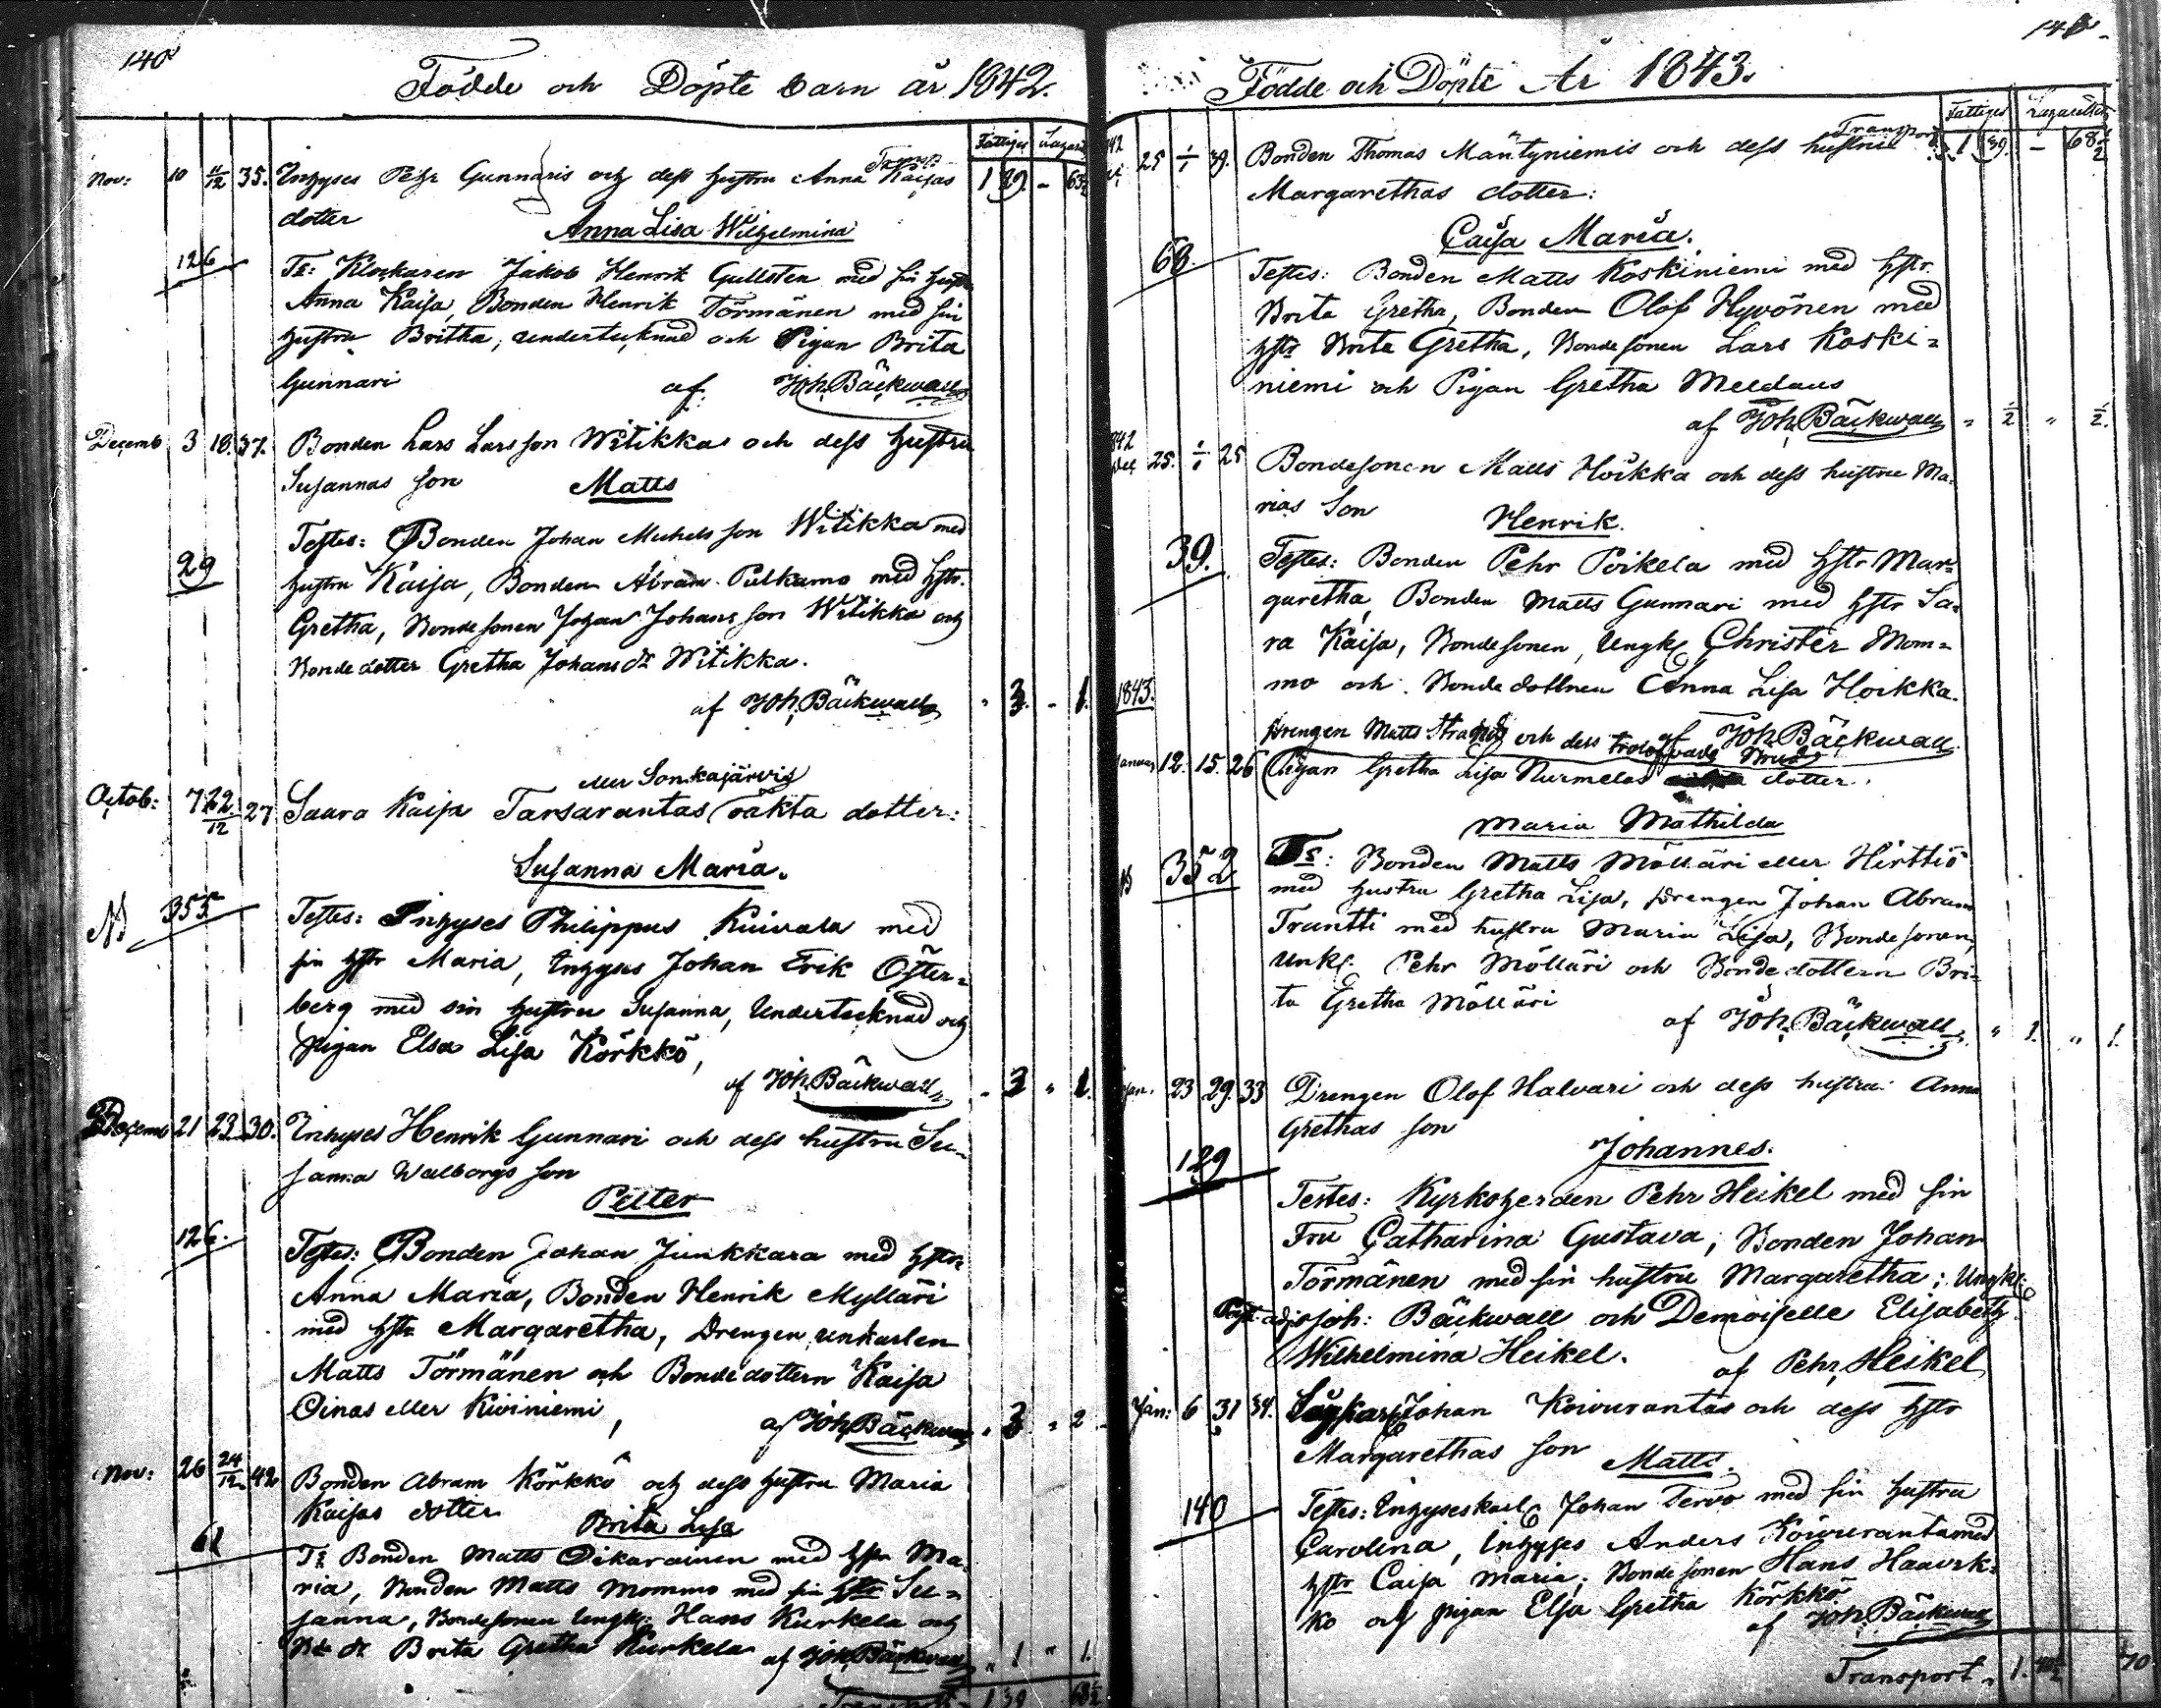 140
Födde och Döpte barn år 1842.
Fattiges Lazar
Transp
Nov: 10 11/12 35. Inhyses Pehr Gunnaris och dess hustru Anna Kaisas 1 29. - 63½
dotter Anna Lisa Wilhelmina
126
Ts: Klockaren Jakob Henrik Gullsten med sin hustru
Anna Kaisa, Bonden Henrik Törmänen med sin
hustru Britha, undertecknad och Pigan Brita
Gunnari af Joh. Bäckwall
Decemb 3 18. 37. Bonden Lars Larsson Witikkas och dess hustru
Susannas son Matts
Testes: Bonden Johan Michelsson Witikka med
29
hustru Kaisa, Bonden Abram Pulkamo med hstr.
Gretha, Bondesonen Johan Johansson Witikka och
Bondedotter Gretha Johansdr Witikka.
af Joh. Bäckwall " 3. - 1.
eller Sonkajärvis
Octob: 7 22/12 27 Saara Kaisa Tarsarantas oäkta dotter:
Susanna Maria.
N 355
Testes: Inhyses Philippus Kuivala med
sin hstr Maria, Inhyses Johan Erik Öster=
berg med sin hustru Susanna, Undertecknad och
Pigan Elsa Lisa Körkkö,
af Joh. Bäckwall " 3 " 1.
Decemb 21 23 30. Inhyses Henrik Gunnari och dess hustru Su=
sanna Walborgs son
Petter
126.
Testes: Bonden Johan Junkkara med hstr
Anna Maria, Bonden Henrik Mylläri
med hstr Margaretha, Drengen unkarlen
Matts Törmänen och Bondedottern Kaisa
Oinas eller Kiviniemi,
af Joh. Bäckwall " 3 " 2
Nov: 26 24/12 42 Bonden Abram Körkkö och dess hustru Maria
Kaisas dotter Brita Lisa
61
Ts Bonden Matts Oikarainen med hstr Ma=
ria, Bonden Matts Mommo med sin hstr Su=
sanna, Bondesonen Ungk: Hans Kurkela och
Bde dr Brita Gretha Kurkela af Joh. Bäckwall " 1 " 1.
Transport 1 39 68½
Födde och Döpte År 1843.
Fattiges Lazarettet
Transport 1 39. - 68½
25 1/1 39. Bonden Thomas Mäntyniemis och dess hustru
Margarethas dotter:
Caisa Maria.
68.
Testes: Bonden Matts Koskiniemi med hstr
Brita Gretha, Bonden Olof Hyvönen med
hstr Brita Gretha, Bondesonen Lars Koski=
niemi och Pigan Gretha Meldaus
af Joh. Bäckwall " ½ " ½.
25. 1/1 25 Bondesonen Matts Hoikka och dess hustru Ma=
rias Son Henrik.
39.
Testes: Bonden Pehr Poikela med hstr Mar=
garetha, Bonden Matts Gunnari med hstr Sa=
ra Kaisa, Bondesonen, Ungk: Christer Mom=
mo och Bondedottren Anna Lisa Hoikka.
1843.
af Joh. Bäckwall
Drengen Matts och dess trolofvade Brud
Januar 12. 15. 26 Pigan Gretha Lisa Nurmelas dotter.
Maria Mathilda
352
Ts: Bonden Matts Mölläri eller Hirttiö
med hustru Gretha Lisa, Drengen Johan Abram
Trantti med hustru Maria Lisa, Bondesonen,
Unk: Pehr Mölläri och Bondedottern Bri=
ta Gretha Mölläri
af Joh. Bäckwall " 1. " 1.
Jan. 23 29. 33 Drengen Olof Halvari och dess hustru Anna
Grethas son
Johannes.
129
Testes: Kyrkoherden Pehr Heikel med sin
Fru Catharina Gustava, Bonden Johan
Törmänen med sin hustru Margaretha; Ungk:
Joh: Bäckwall och Demoiselle Elisabeth
Wilhelmina Heikel. af Pehr Heikel
Jan: 6 31 34. Johan Koivurantas och dess hstr
Margarethas son Matts.
140
Testes: Inhyseskarl Johan Tervo med sin hustru
Carolina, Inhyses Anders Koivuranta med
hstr Caisa Maria; Bondesonen Hans Haavik=
ko och pigan Elsa Gretha Körkkö
af Joh. Bäckwall
Transport 1. 70